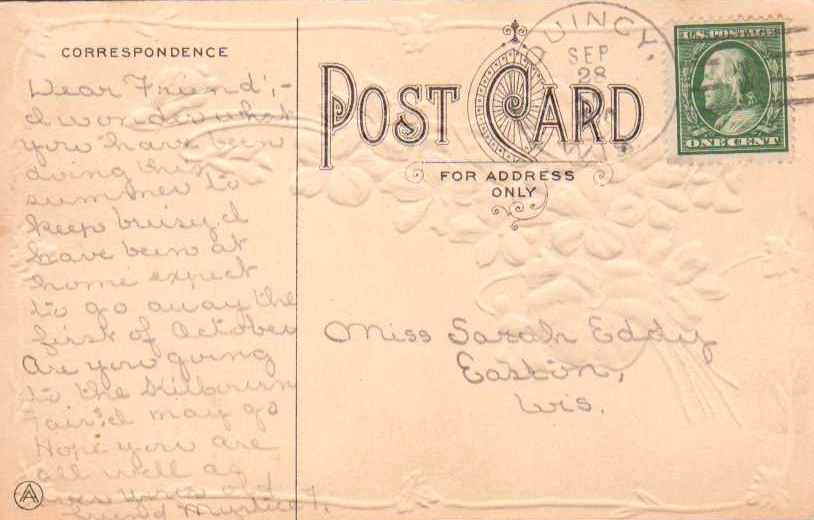 CORRESPONDENCE
Dear Friend,-
I wonder what
you have been
doing this
summer to
keep buisy I
have been at
home expect
to go away the
first of October
Are you going
to the Kilbourn
Fair. I may go
Hope you are
all well as
ever yours of
friend Myrtie
POST CARD
FOR ADDRESS
ONLY
QUINCY,
SEP
28
WIS
U.S. POSTAGE
ONE CENT
Miss Sarah Eddy
Easton,
Wis.